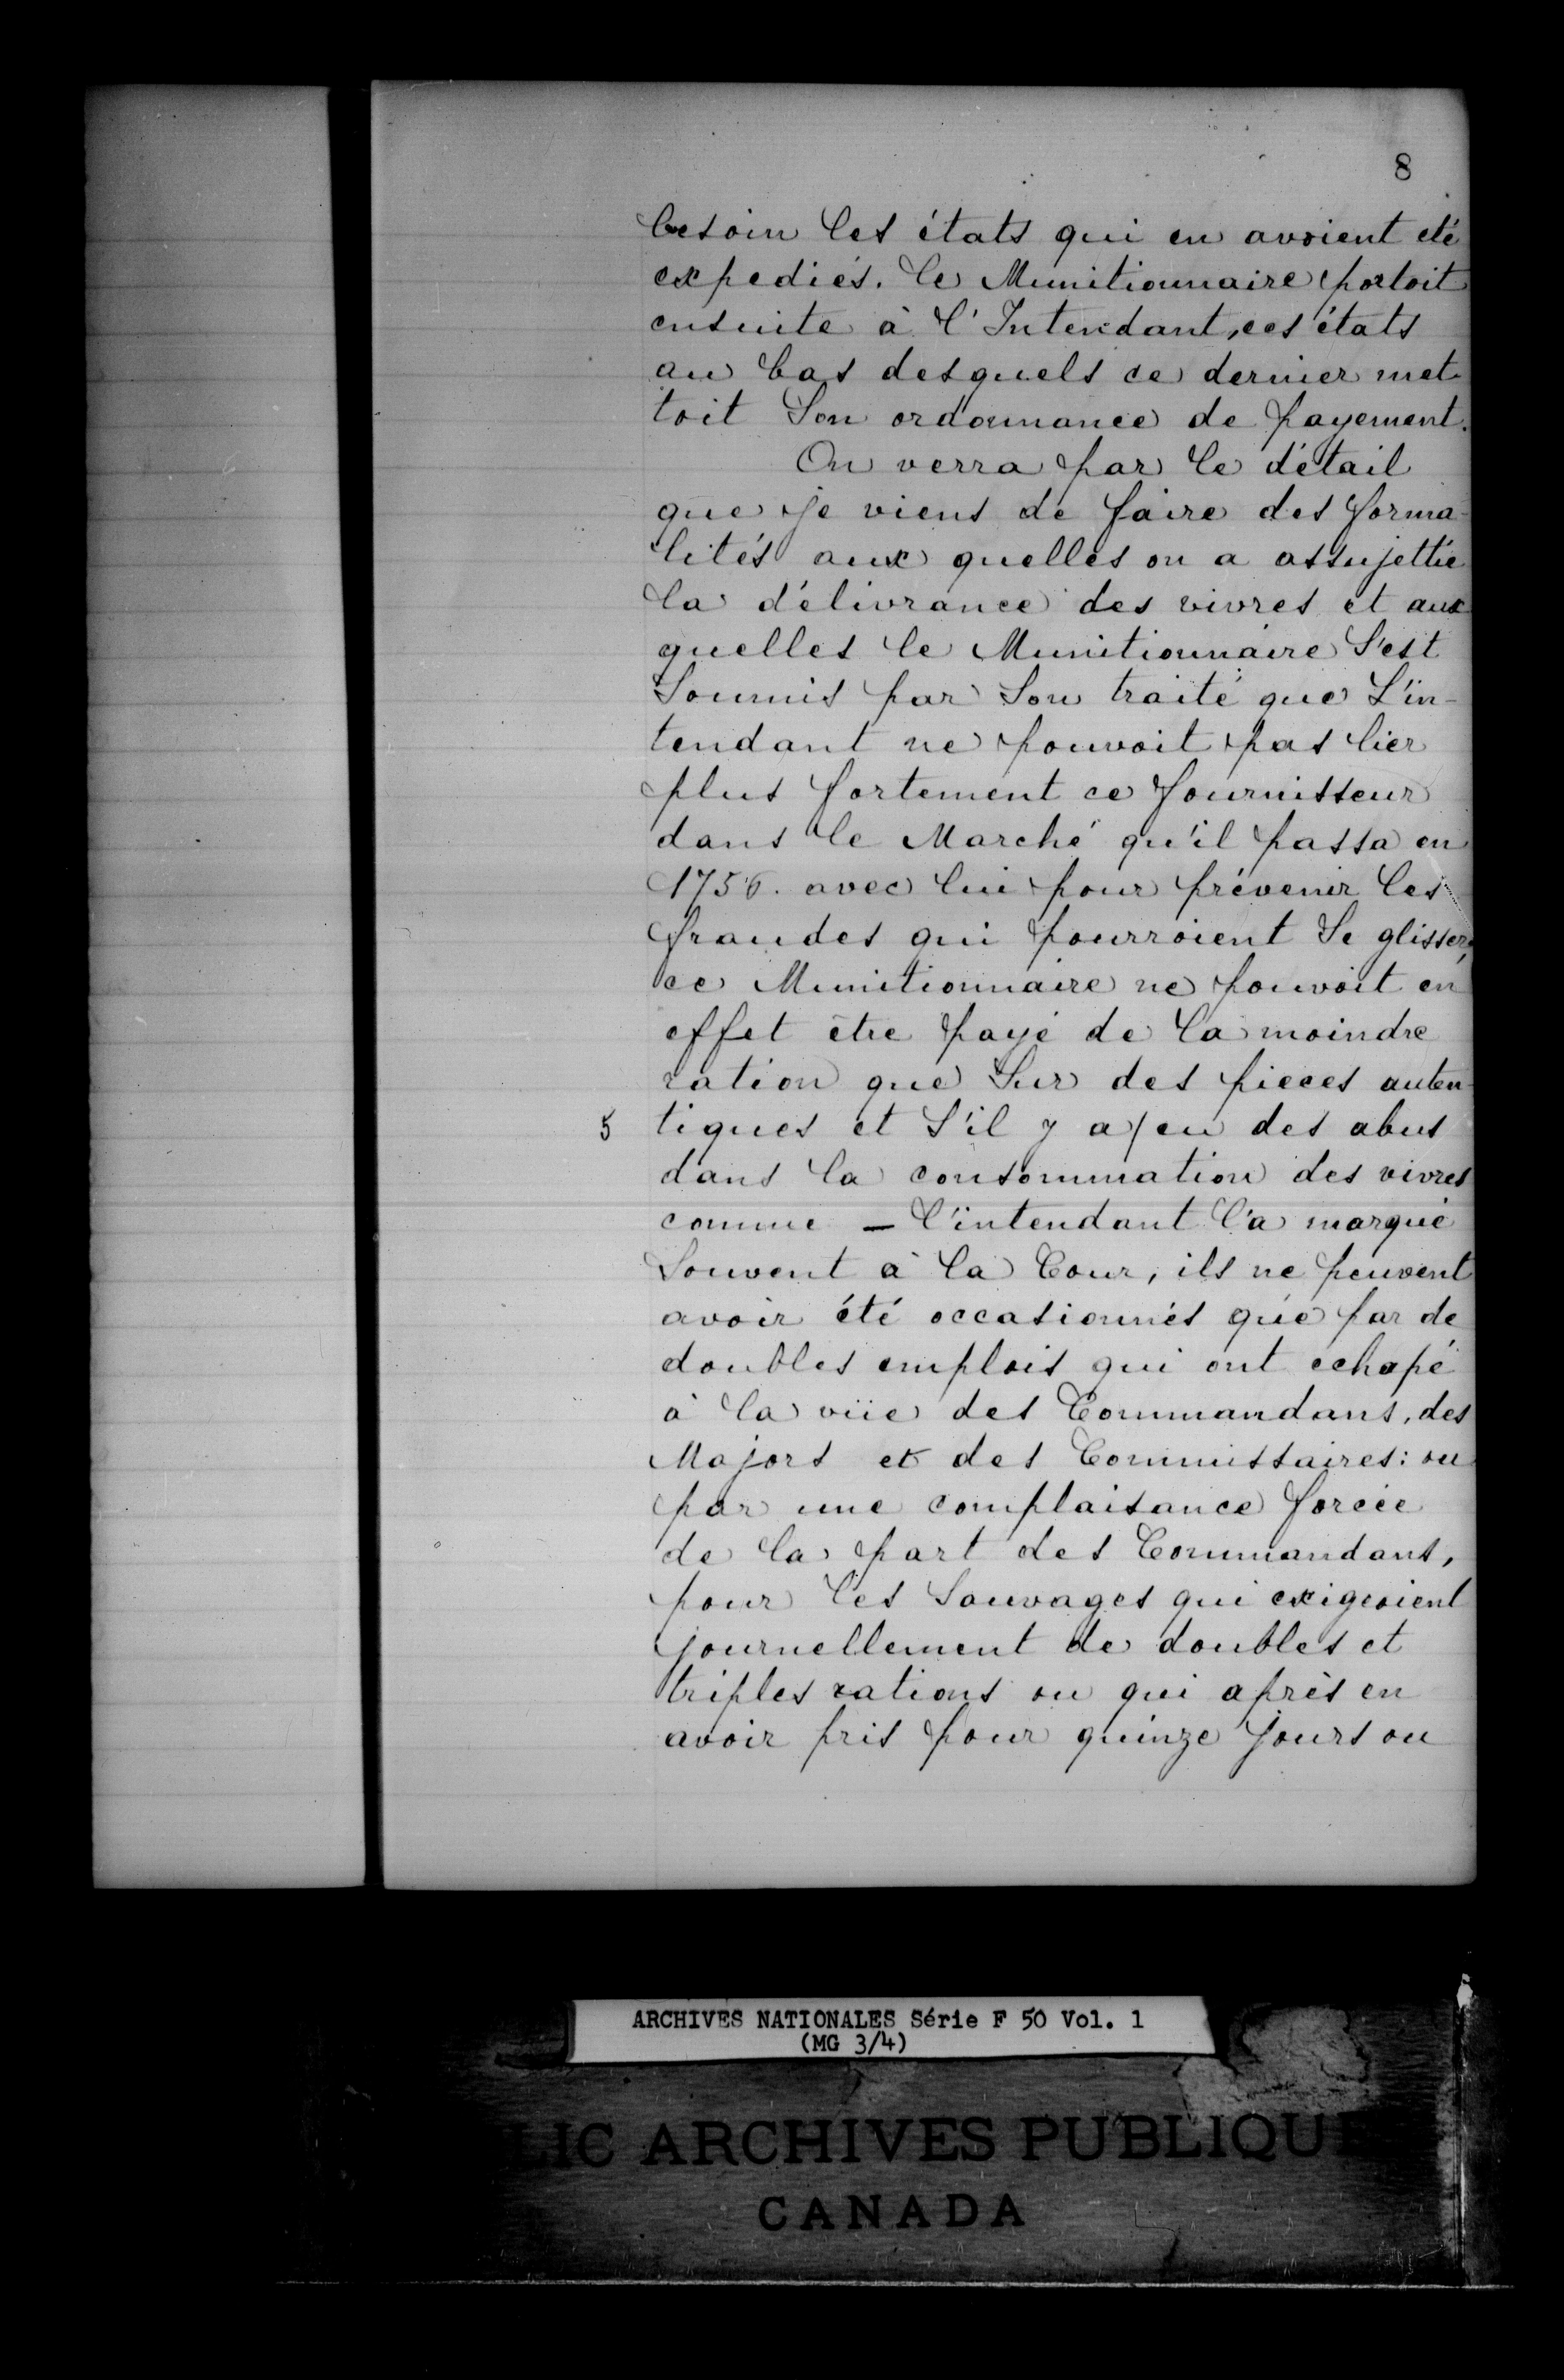 8
besoin les états qui en avoient eté
expediés. le Munitionnaire portoit
ensuite à l'Intendant, ces états
au bas desquels ce dernier met-
toit Son ordonnance de payement.
On verra par le détail
que je viens de faire des forma-
lités aux quelles on a assujettie
la délivrance des vivres et aux
quelles le Munitionnaire S'est
Soumis par Son traité que L'in-
tendant ne pouvoit pas lier
plus fortement ce fournisseur
dans le Marché qu'il passa en
1756. avec lui pour prévenir les
fraudes qui pourroient Se glisser,
ce Munitionnaire ne pouvoit en
effet être payé de la moindre
ration que Sur des pieces auten-
5 tiques et S'il y a/eu des abus
dans la consommation des vivres
comme — l'intendant l'a marqué
Souvent à la Cour, ils ne peuvent
avoir été occasionnés que par de
doubles emplois qui ont echapé
à la vüe des Commandans, des
Majors et des Commissaires: ou
par une complaisance forcée
de la part des Commandans,
pour les Sauvages qui exigeoient
journellement de doubles et
triples rations ou qui après en
avoir pris pour quinze jours ou
ARCHIVES NATIONALES Série F 50 Vol. 1
(MG 3/4)
LIC ARCHIVES PUBLIQUE
CANADA